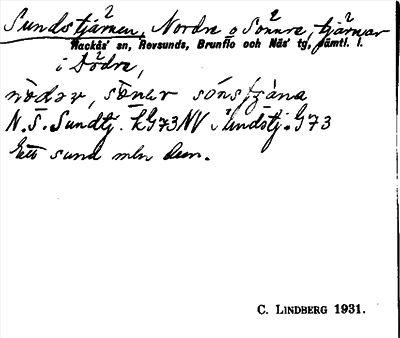 Sundstjärnen, Nordre o Sonnre, tjärnar
Hackås' sn, Revsunds, Brunflo och Näs' tg, Jämtl. l.
i Södre,
nödər, sönər sónstjàna
N. S. Sundtj. kG73NV, Sundstj. G73
Ett sund mln dem.
C. LINDBERG 1931.